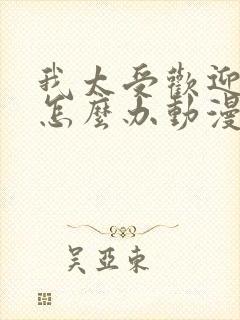 我太受歡迎
怎麼办動漫
吴亞東